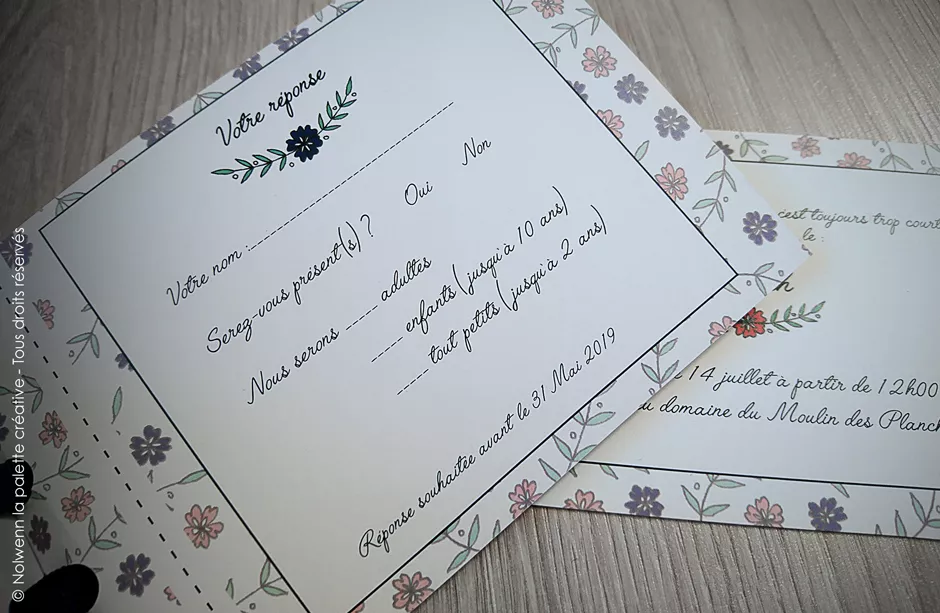 Votre réponse
Votre nom :
Serez-vous présent(s) ? Oui Non
Nous serons ---- adultes
---- enfants (jusqu'à 10 ans)
---- tout petits (jusqu'à 2 ans)
Réponse souhaitée avant le 31 Mai 2019
c'est toujours trop court
le :
h
14 juillet à partir de 12h00
u domaine du Moulin des Planch
© Nolwenn la palette créative - Tous droits réservés